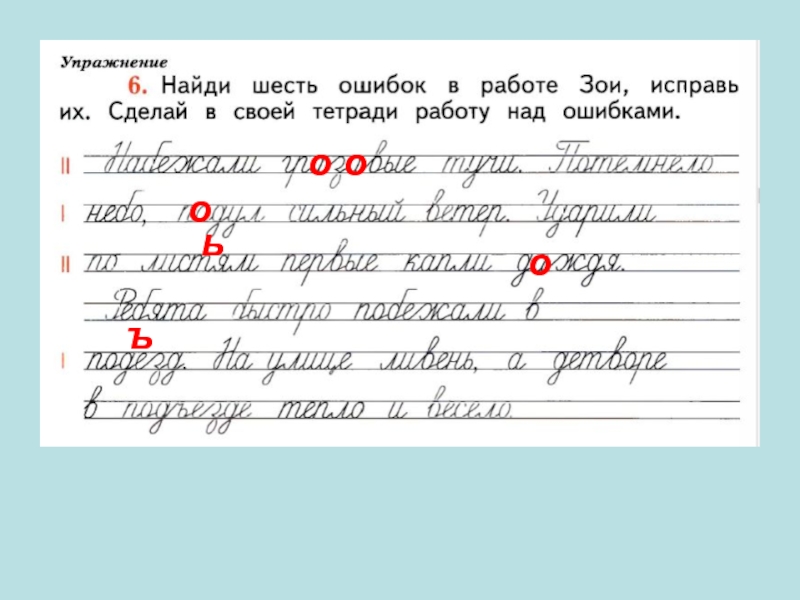 Упражнение
6. Найди шесть ошибок в работе Зои, исправь
их. Сделай в своей тетради работу над ошибками.
II Набежали грозовые тучи. Потемнело
I небо, подул сильный ветер. Ударили
ь
II по листям первые капли дождя.
Ребята быстро побежали в
ъ
I подезд. На улице ливень, а детворе
в подъезде тепло и весело.